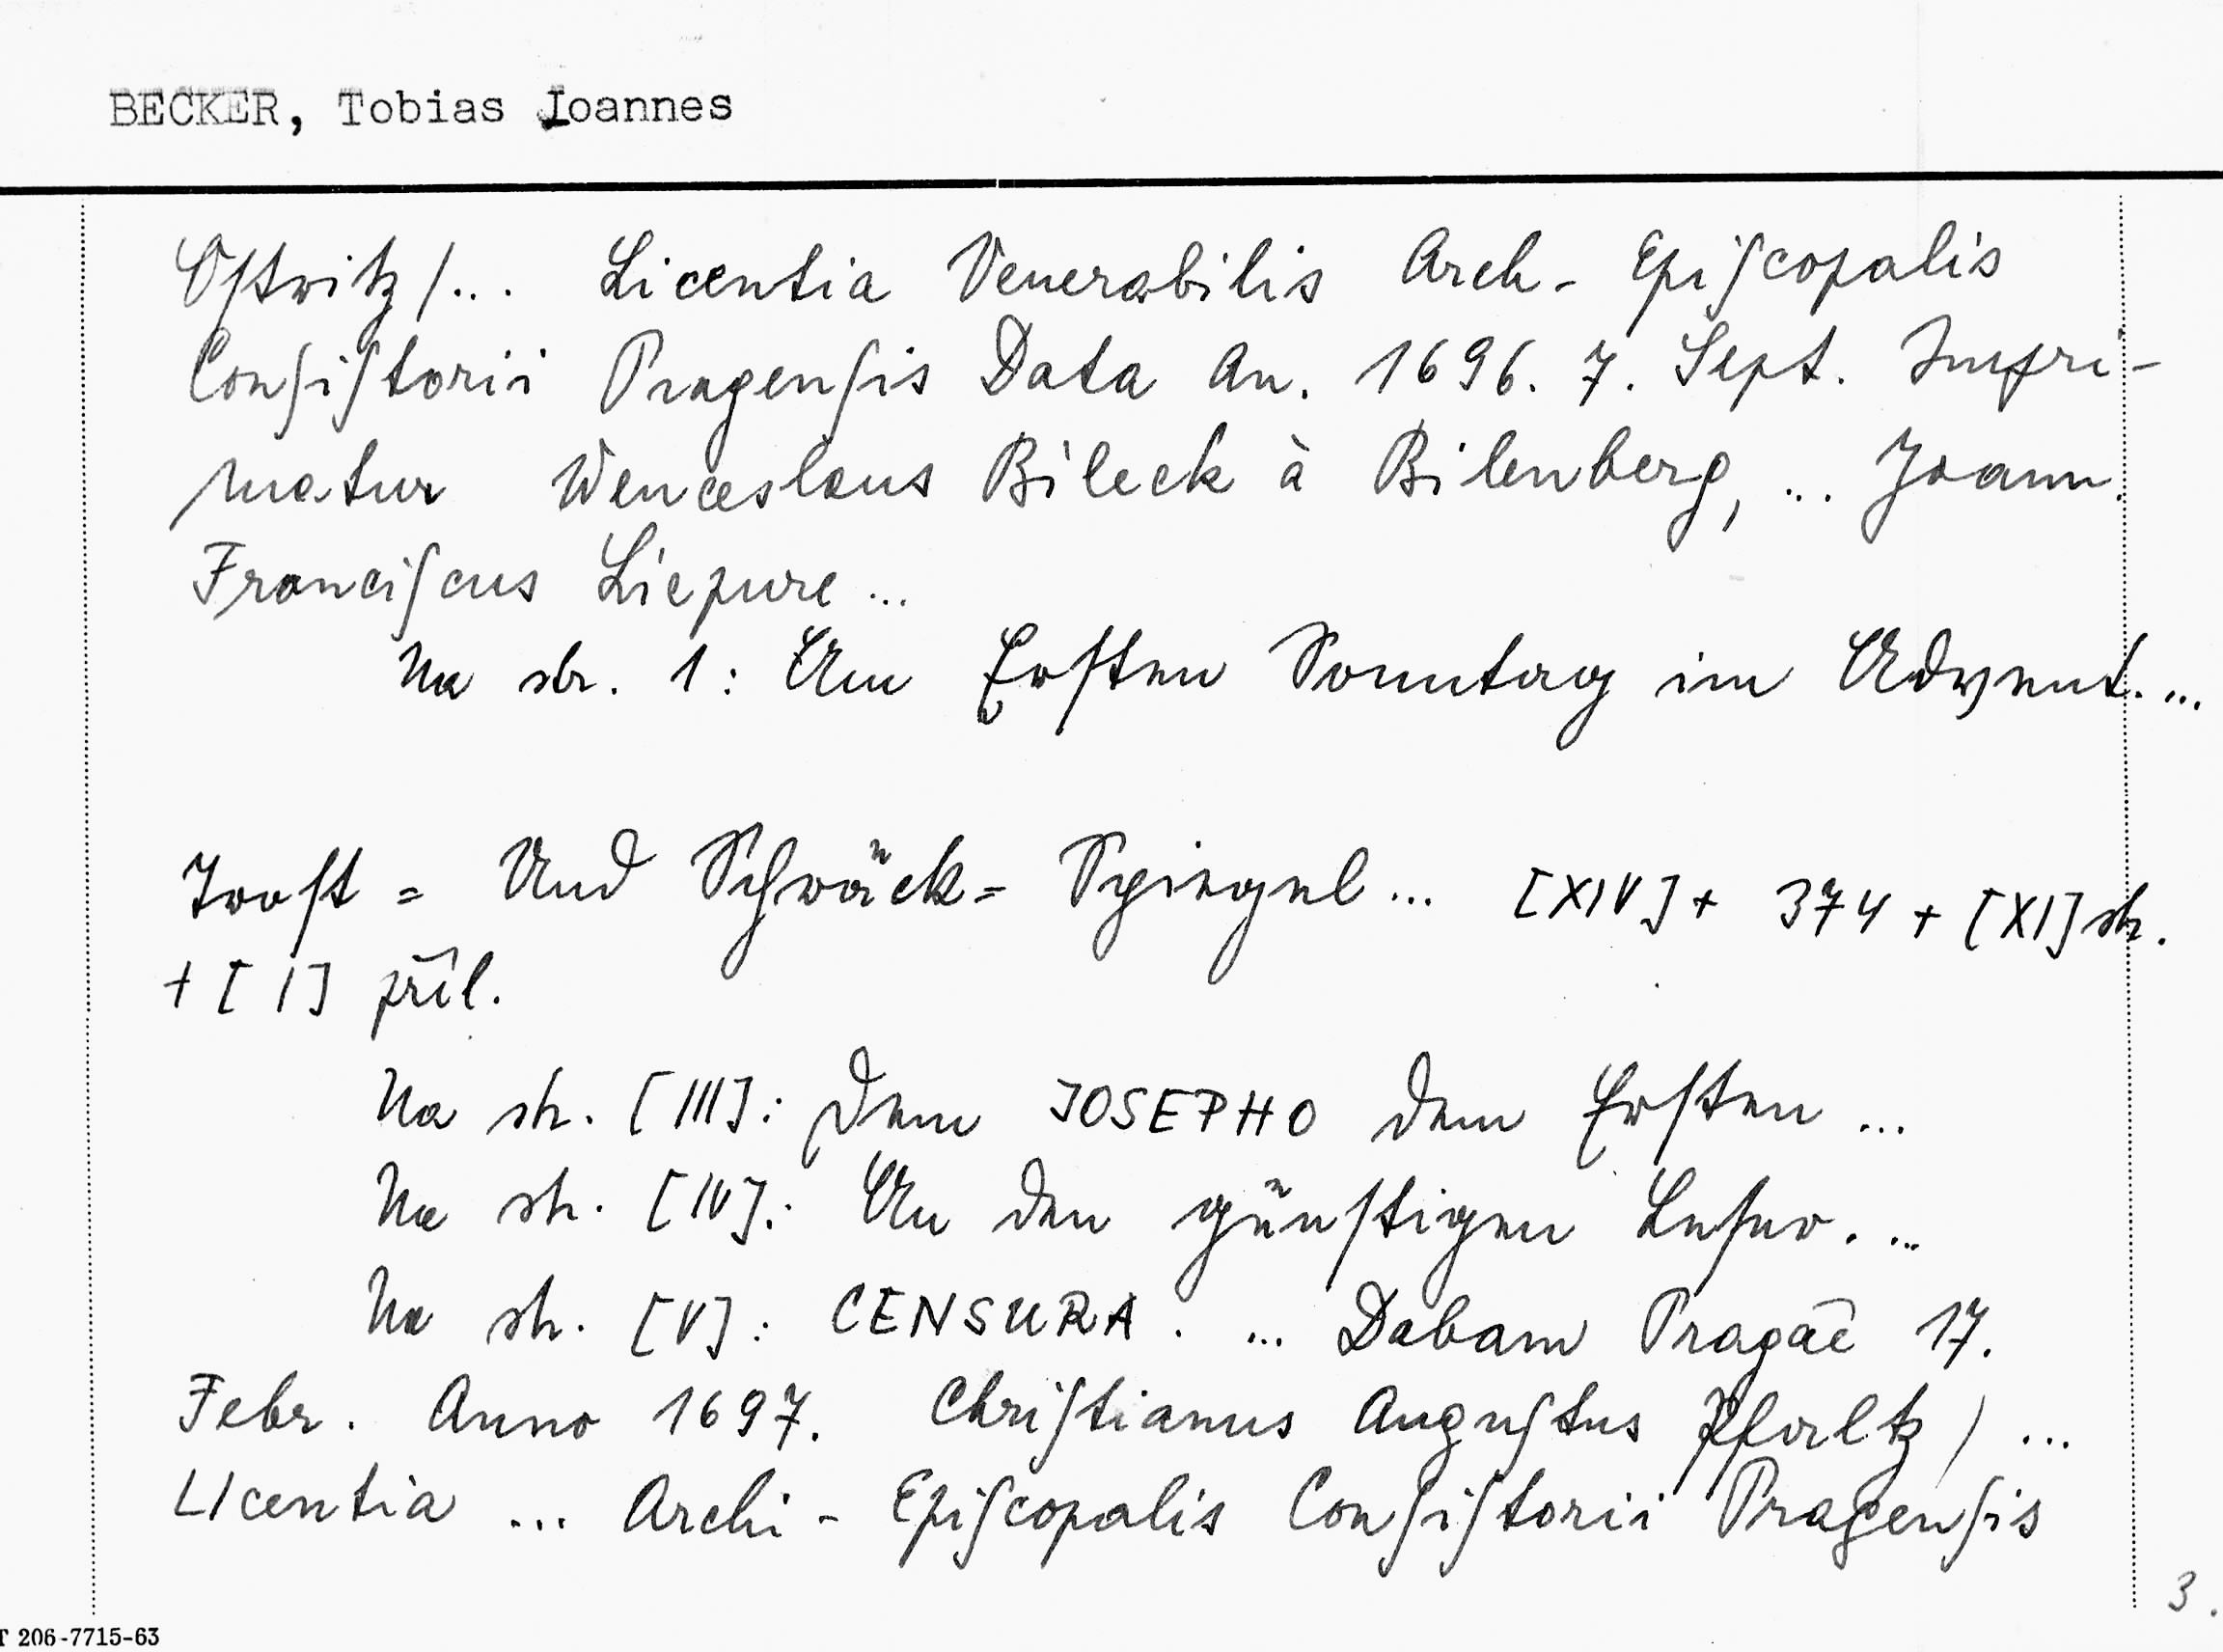 BECKER, Tobias Joannes
Oſtritz/... Licentia Venerabilis Arch- Epiſcopalis
Conſiſtorii Pragenſis Data An. 1696. 7. Sept. Impri-
matur Wenceslaus Bileck à Bilenberg, ... Joann.
Franciſcus Liepure ...
Na str. 1: Am Erſten Sonntag im Advent. ...
Troſt = Und Schröck= Spiegel... [XIV] + 374 + [XI] str.
+ [I] příl.
Na str. [III]: Dem JOSEPHO dem Erſten ...
Na str. [IV]: An den günſtigen Leſer. ...
Na str. [V]: CENSURA. ... Dabam Pragae 17.
Febr. Anno 1697. Chriſtianus Auguſtus Pfaltz / ...
LIcentia ... Archi- Epiſcopalis Conſiſtorii Pragenſis
3.
T 206-7715-63